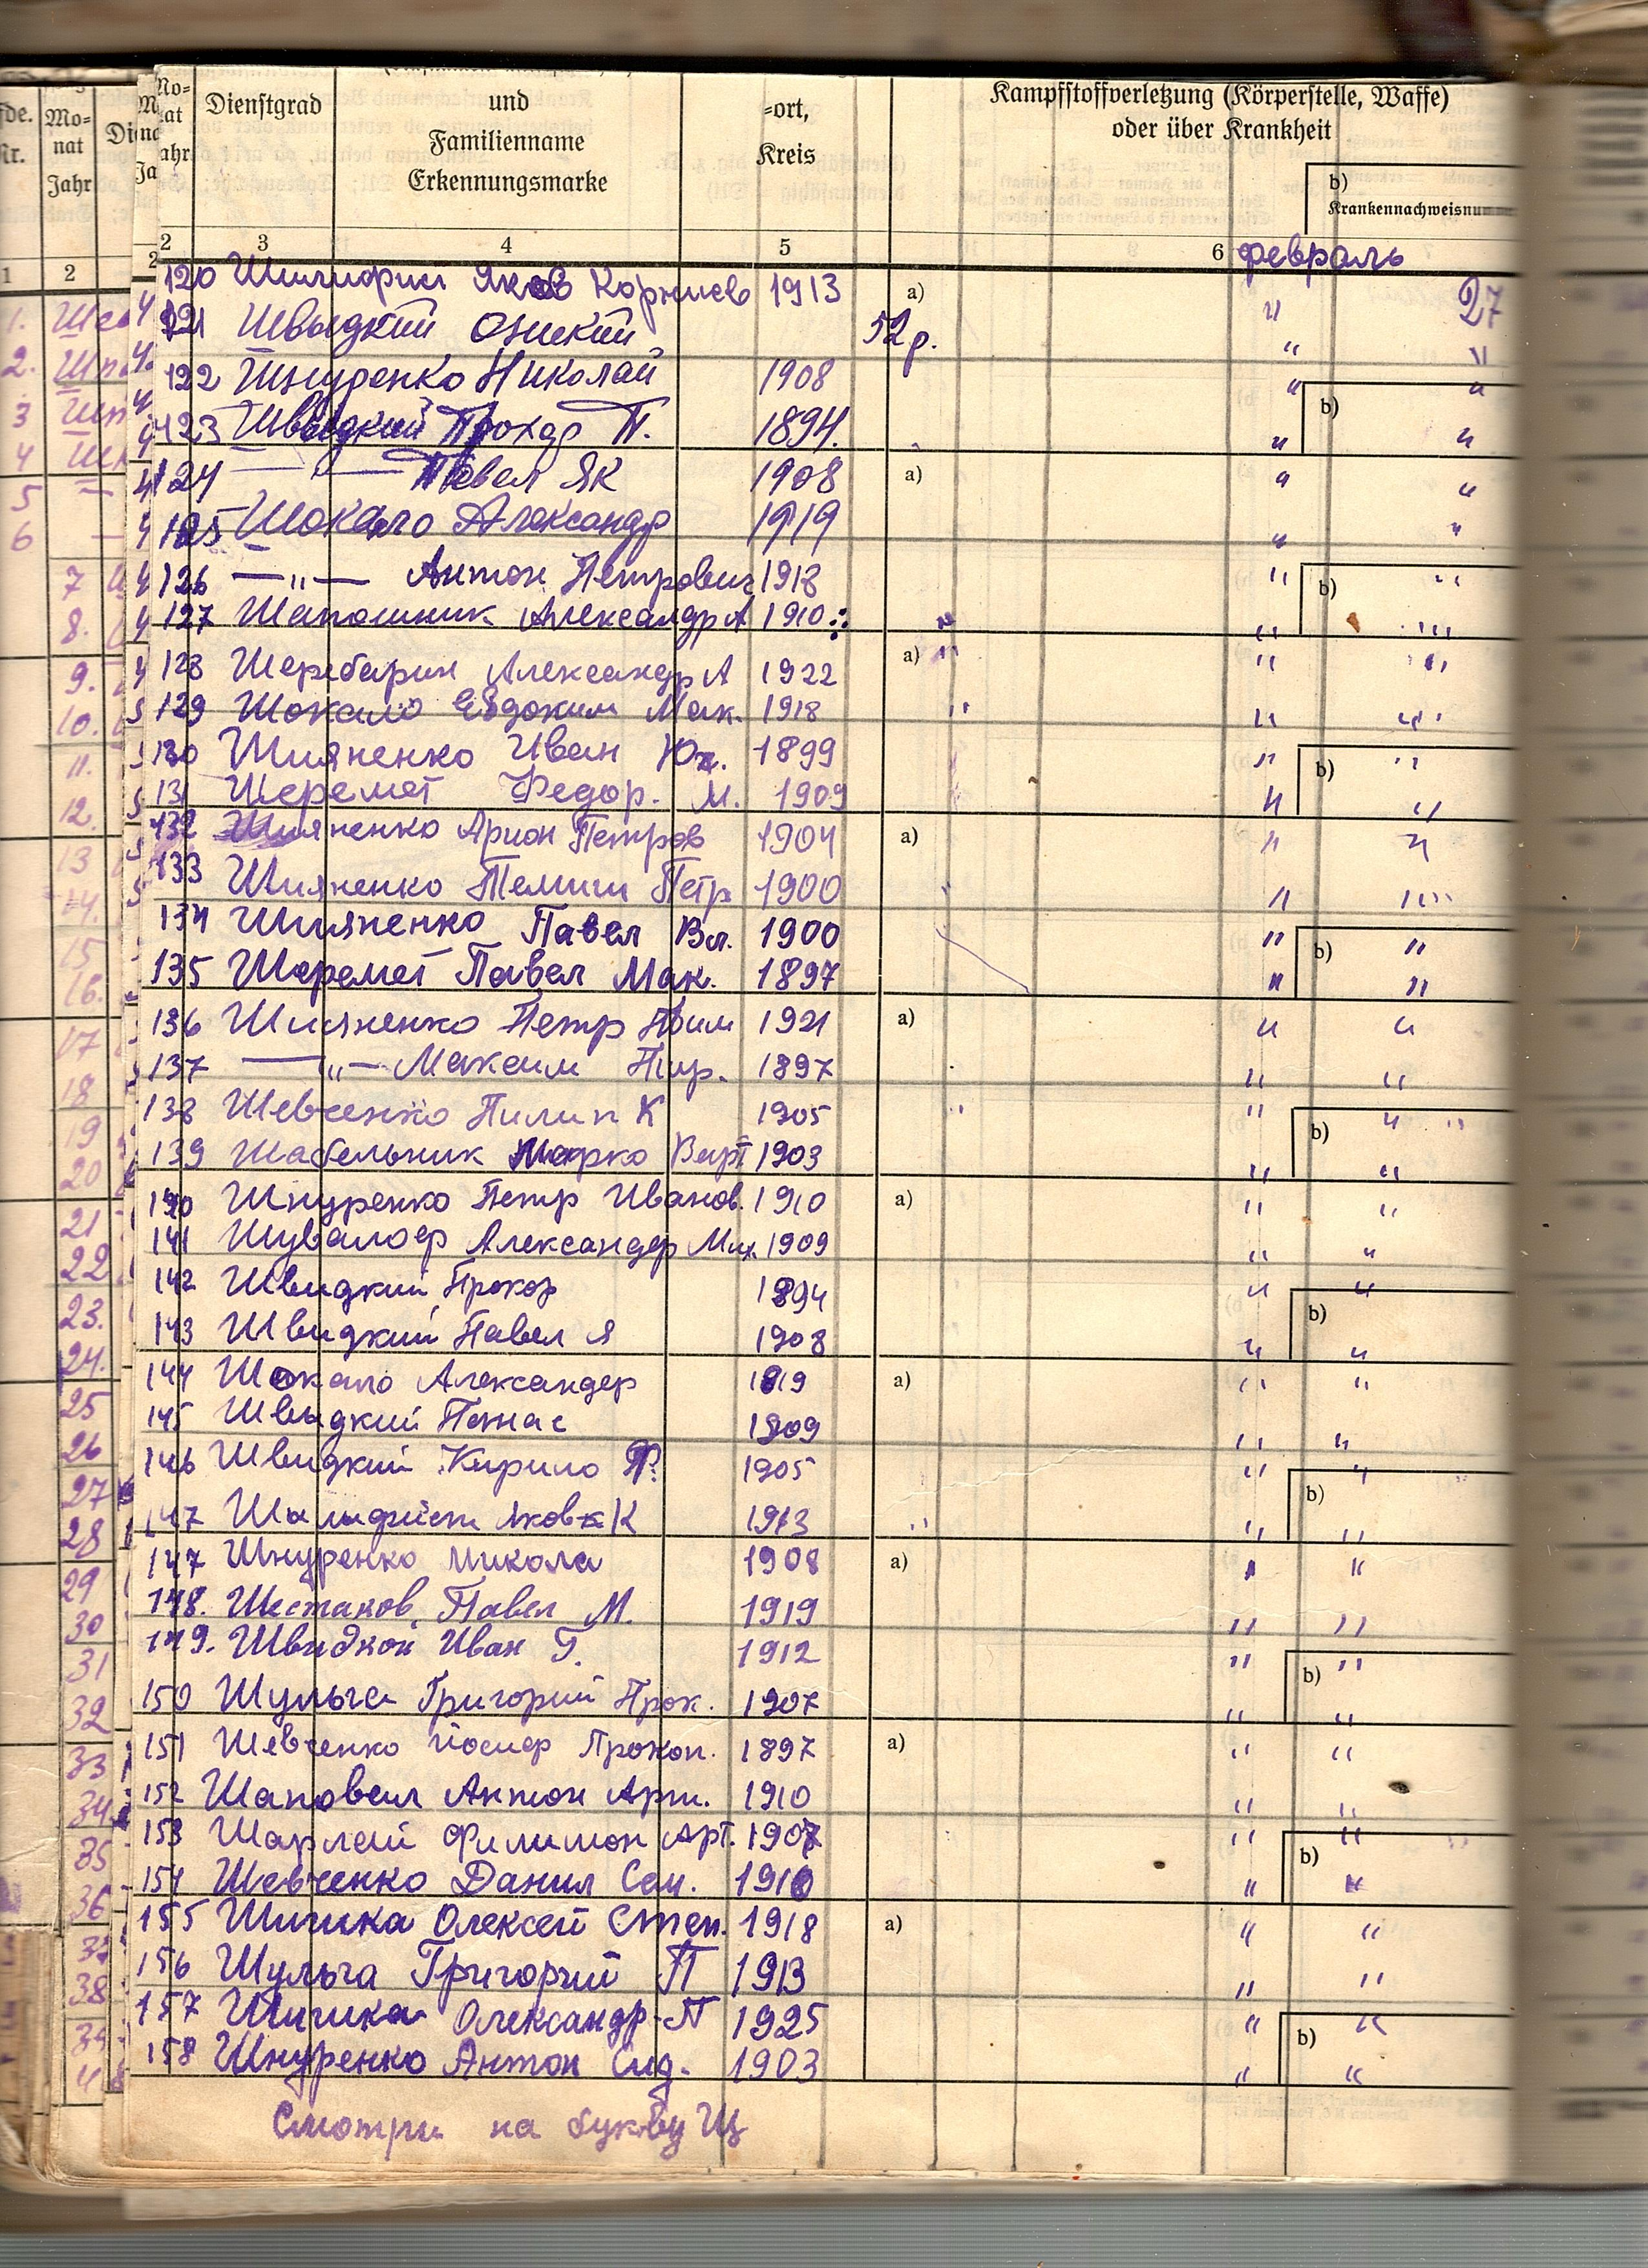 Mo-
nat
Jahr
Dienstgrad
und
Familienname
Erkennungsmarke
=ort,
Kreis
Kampfstoffverletzung (Körperstelle, Waffe)
oder über Krankheit
b)
Krankennachweisnum
2 3 4 5 6 февраль
120 Яков Корниев 1913 a) " 27
121 Швыдкий 52 р. " "
122 Шнуренко Николай 1908 " "
123 Швыдкий Прохор П. 1894. b) " "
124 — — Павел Як 1908 a) " "
125 Шокало Александр 1919 " "
126 —"— Антон Петрович 1918 " "
127 Шапошник Александр А 1910 b) " "
128 Александр А 1922 a) " "
129 Шокало Евдоким Мак. 1918 " "
130 Шияненко Иван 1899 " "
131 Шеремет Федор. М. 1909 b) " "
132 Шияненко Арион Петров 1904 a) " "
133 Шияненко Петр 1900 " "
134 Шияненко Павел Вл. 1900 " "
135 Шеремет Павел Мак. 1897 b) " "
136 Шияненко Петр 1921 a) " "
137 —"— Максим 1897 " "
138 Шевченко Пилип К 1905 " "
139 Шабельник Марко 1903 b) " "
140 Шнуренко Петр Иванов. 1910 a) " "
141 Александер Мих. 1909 " "
142 Швидкий Прохор 1894 " "
143 Швидкий Павел Я 1908 b) " "
144 Шокало Александер 1919 a) " "
145 Швыдкий 1909 " "
146 Швидкий Кирило 1905 " "
147 Яков К 1913 b) " "
147 Шнуренко Микола 1908 a) " "
148. Шестаков Павел М. 1919 " "
149. Швидкой Иван Г. 1912 " "
150 Шульга Григорий Прок. 1907 b) " "
151 Шевченко Йосиф Прокоп. 1897 a) " "
152 Шаповал Антон Арт. 1910 " "
153 Шарлей Филимон Арт. 1907 " "
154 Шевченко Данил Сем. 1910 b) " "
155 Шишка Олексей Степ. 1918 a) " "
156 Шульга Григорий П 1913 " "
157 Шишка Олександр П 1925 " "
158 Шнуренко Антон Сид. 1903 b) " "
Смотри на букву Щ